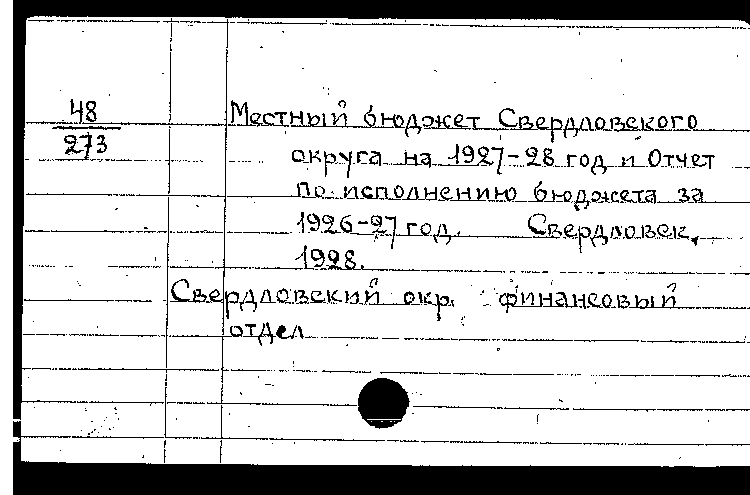 48
273
Местный бюджет Свердловского
округа на 1927-28 год и Отчет
по исполнению бюджета за
1926-27 год. Свердловск,
1928.
Свердловский окр. финансовый
отдел